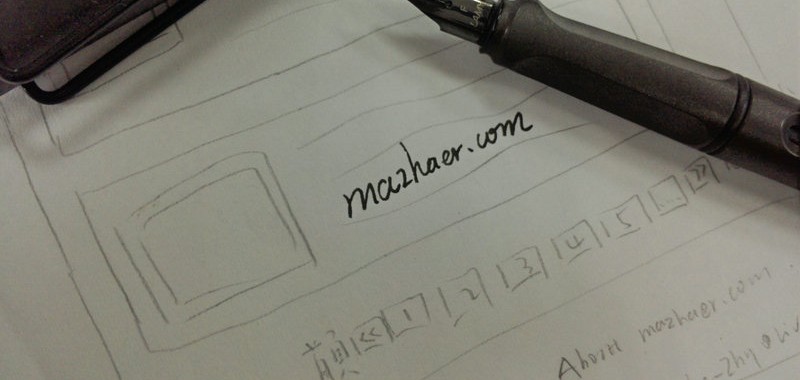 mazhaer.com
1 2 3 4 5
About mazhaer.com